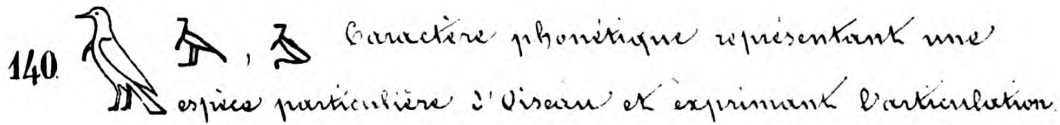 140. , Caractère phonétique représentant une
espèce particulière d'Oiseau et exprimant l'articulation.